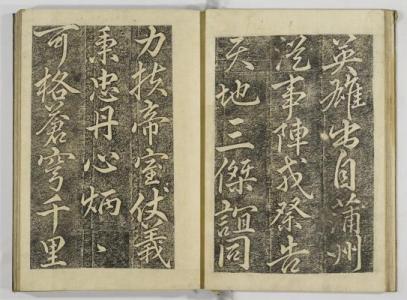 英雄出自蒲州
從事陣戎祭告
天地三傑誼同
力扶帝室仗義
秉忠丹心炳〻
可格蒼穹千里